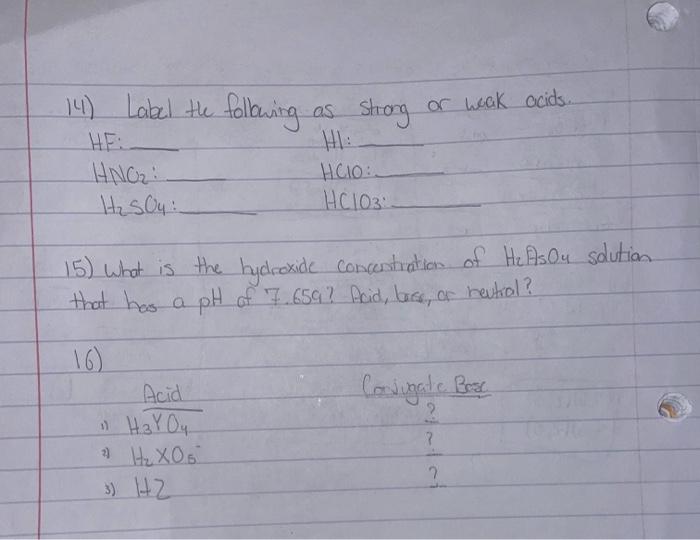 14) Label the following as strong or weak acids.
HF: ____ HI: ____
HNO2: ____ HClO: ____
H2SO4: ____ HClO3: ____
15) What is the hydroxide concentration of H2AsO4 solution
that has a pH of 7.659? Acid, base, or neutral?
16)
Acid Conjugate Base
1) H3YO4 ?
2) H2XO5⁻ ?
3) HZ ?